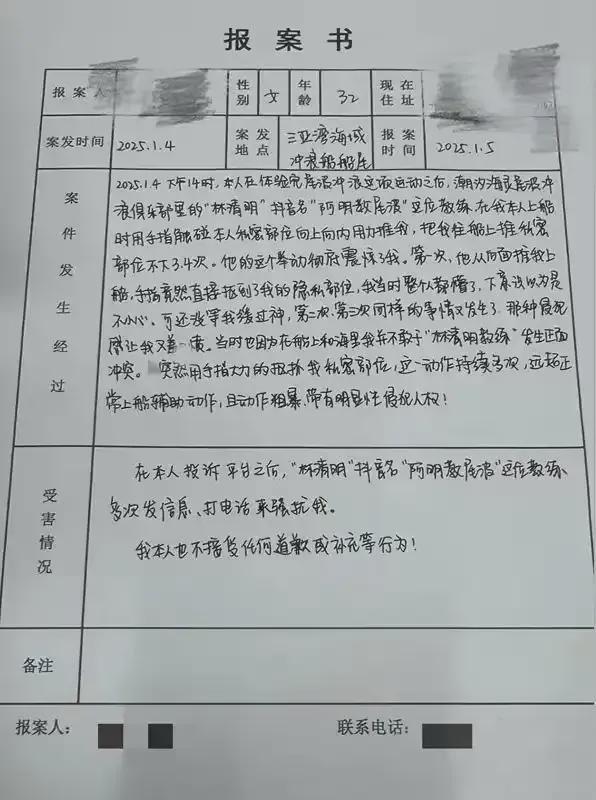 报案书
报案人 性别 女 年龄 32 现在住址
案发时间 2025.1.4 案发地点 三亚湾海域冲浪船船尾 报案时间 2025.1.5
案件发生经过
2025.1.4 下午14时,本人在体验完尾波冲浪这项运动之后,潮汐海灵尾波冲
浪俱乐部里的“林清明”抖音名“阿明教尾波”这位教练在我本人上船
时用手指触碰本人私密部位向上向内用力推我,把我往船上推私密
部位不下3.4次。他的这个举动彻底震惊了我。第一次,他从后面推我上
船,手指竟然直接抠到了我的隐私部位,我当时整个都懵了,下意识以为是
不小心。可还没等我缓过神,第二次、第三次同样的事情又发生了,那种侵犯
感让我又羞 愤。当时也因为在船上和海里我并不敢于“林清明教练”发生正面
冲突。 突然用手指大力的抠扑我私密部位,这一动作持续多次,远超正
常上船辅助动作,且动作粗暴、带有明显性侵犯人权!
受害情况
在本人投诉平台之后,“林清明”抖音名“阿明教尾波”这位教练、
多次发信息、打电话来骚扰我。
我本人也不接受任何道歉或补充等行为!
备注
报案人: 联系电话: